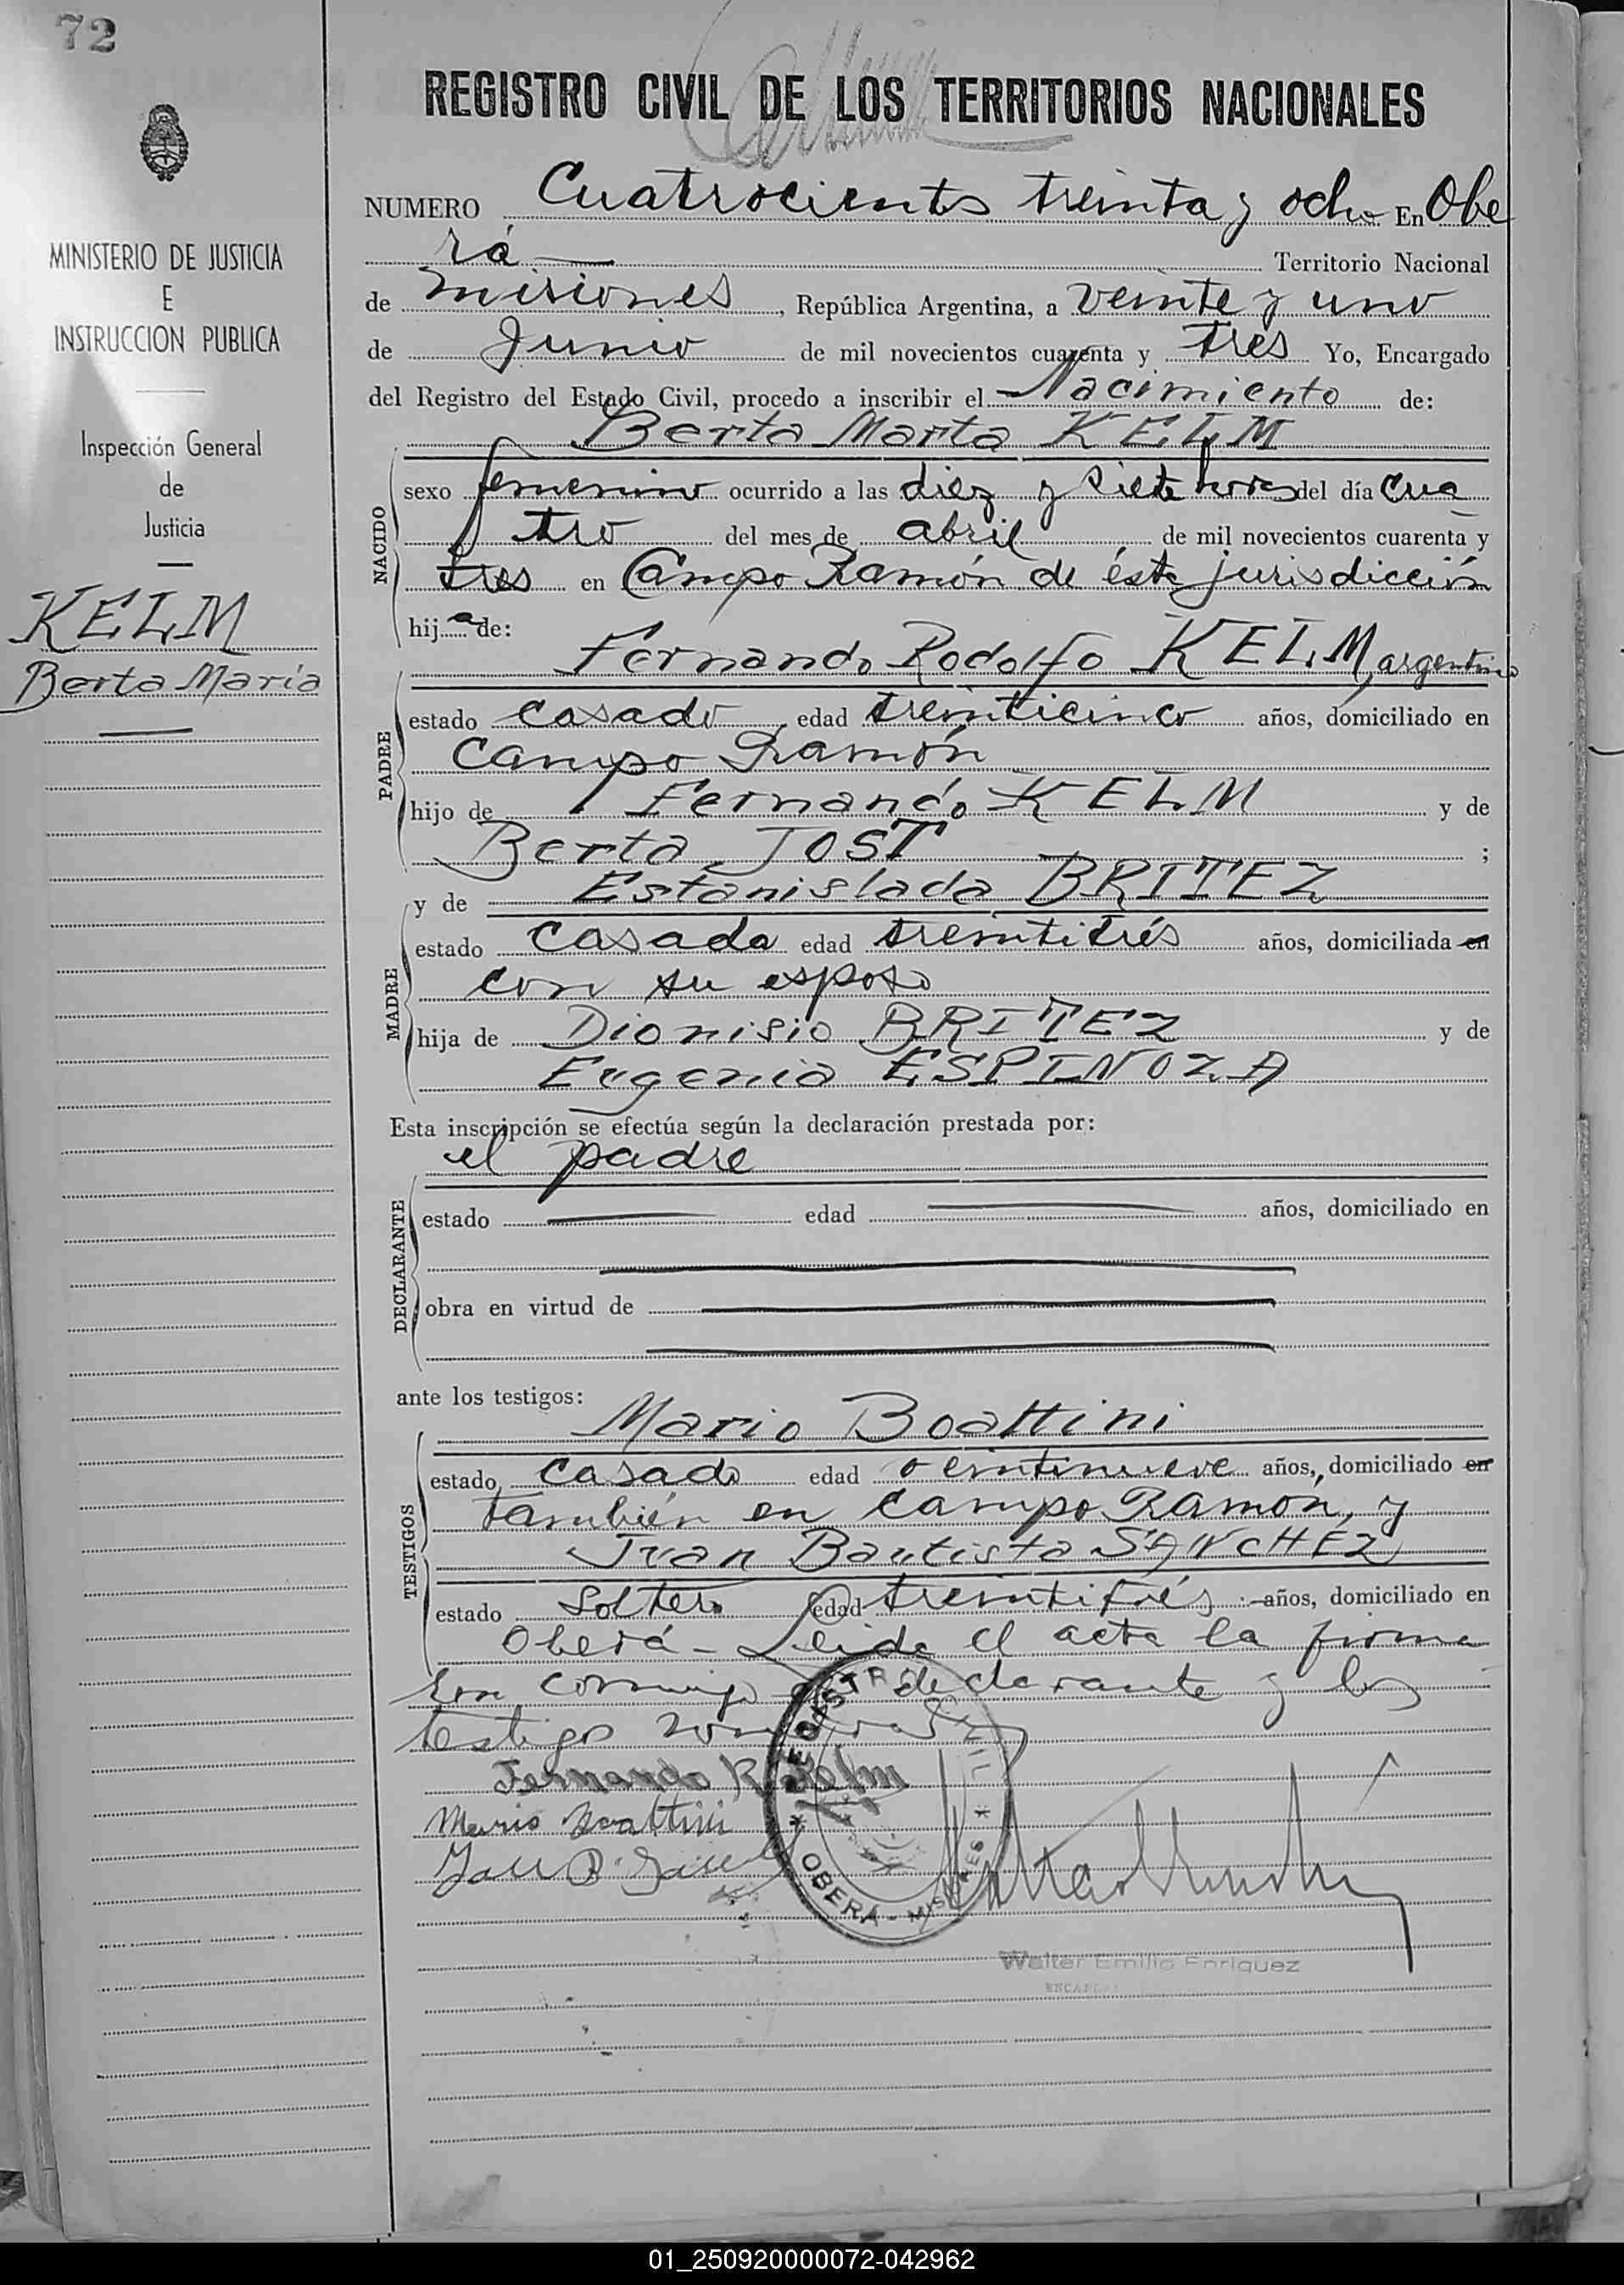 72
REGISTRO CIVIL DE LOS TERRITORIOS NACIONALES
MINISTERIO DE JUSTICIA
E
INSTRUCCION PUBLICA
Inspección General
de
Justicia
KELM
Berta Maria
NUMERO Cuatrocientos treinta y ocho En Obe
rá Territorio Nacional
de Misiones, República Argentina, a veinte y uno
de Junio de mil novecientos cuarenta y tres Yo, Encargado
del Registro del Estado Civil, procedo a inscribir el Nacimiento de:
Berta Marta KELM
NACIDO
sexo femenino ocurrido a las diez y siete horas del día cua
tro del mes de abril de mil novecientos cuarenta y
tres en Campo Ramón de ésta jurisdicción
hija de:
Fernando Rodolfo KELM, argentino
PADRE
estado casado, edad treinticinco años, domiciliado en
Campo Ramón
hijo de Fernando KELM y de
Berta JOST ;
y de Estanislada BRITEZ
MADRE
estado casada edad treintitrés años, domiciliada en
con su esposo
hija de Dionisio BRITEZ y de
Eugenia ESPINOZA
Esta inscripción se efectúa según la declaración prestada por:
el padre
DECLARANTE
estado edad años, domiciliado en
obra en virtud de
ante los testigos:
Mario Boattini
TESTIGOS
estado casado edad veintinueve años, domiciliado en
también en Campo Ramón, y
Juan Bautista SANCHEZ
estado soltero edad treintitrés años, domiciliado en
Oberá - Leída el acta la firma
ron conmigo el declarante y los
testigos
Fernando R Kelm
Mario Boattini
REGISTRO CIVIL
OBERÁ - MISIONES
Walter Emilio Enriquez
ENCARGADO
01_250920000072-042962